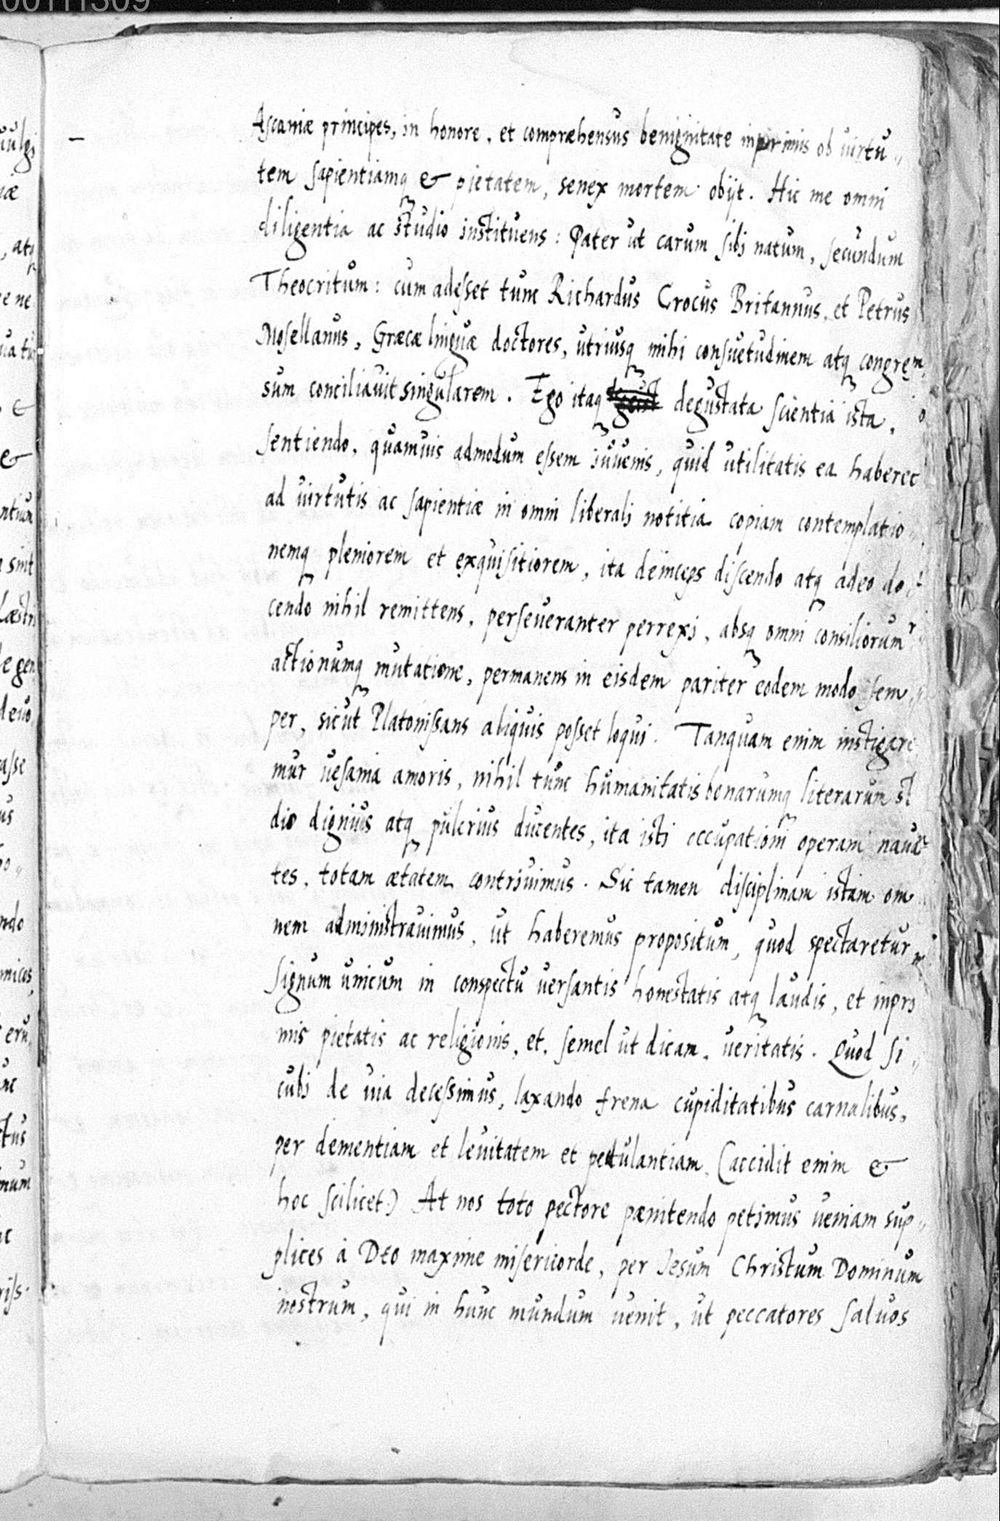 00111309
Ascaniæ principes, in honore, et compræhensus benignitate inprimis ob uirtu„
tem sapientiamq & pietatem, senex mortem obijt. Hic me omni
diligentia ac studio instituens: Pater ut carum sibi natum, secundum
Theocritum: cum adesset tum Richardus Crocus Britannus, et Petrus
Mosellanus, Græcæ linguæ doctores, utriusq mihi consuetudinem atq congres
sum conciliauit singularem. Ego itaq degustata scientia ista,
sentiendo, quamuis admodum essem iuuenis, quid utilitatis ea haberet
ad uirtutis ac sapientiæ in omni liberali notitia copiam contemplatio„
nemq pleniorem et exquisitiorem, ita deinceps discendo atq adeo do„
cendo nihil remittens, perseueranter perrexi, absq omni consiliorum
actionumq mutatione, permanens in eisdem pariter eodem modo sem„
per, sicut Platonissans aliquis posset loqui. Tanquam enim instigare
mur uesania amoris, nihil tunc humanitatis bonarumq literarum st
dio dignius atq pulcrius ducentes, ita isti occupationi operam naua
tes, totam ætatem contriuimus. Sic tamen disciplinam istam om
nem administrauimus, ut haberemus propositum, quod spectaretur
signum unicum in conspectu uersantis honestatis atq laudis, et inpri
mis pietatis ac religionis, et, semel ut dicam, ueritatis. Quod si„
cubi de uia decessimus, laxando frena cupiditatibus carnalibus,
per dementiam et leuitatem et petulantiam (accidit enim &
hoc scilicet) At nos toto pectore pænitendo petimus ueniam sup„
plices à Deo maxime misericorde, per Iesum Christum Dominum
nostrum, qui in hunc mundum uenit, ut peccatores saluos